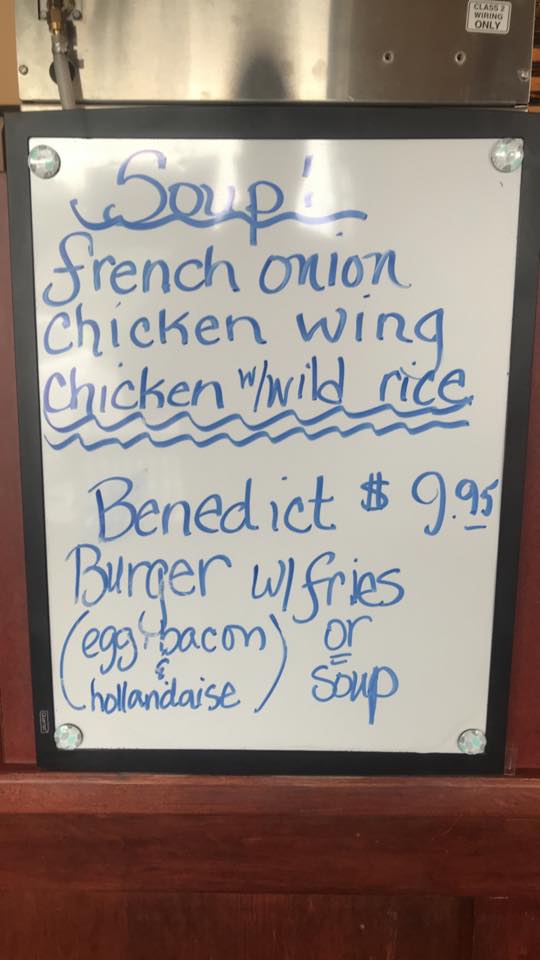 CLASS 2
WIRING
ONLY
Soup!
french onion
chicken wing
chicken w/wild rice
Benedict $9.95
Burger w/fries
(egg, bacon) or
& hollandaise soup